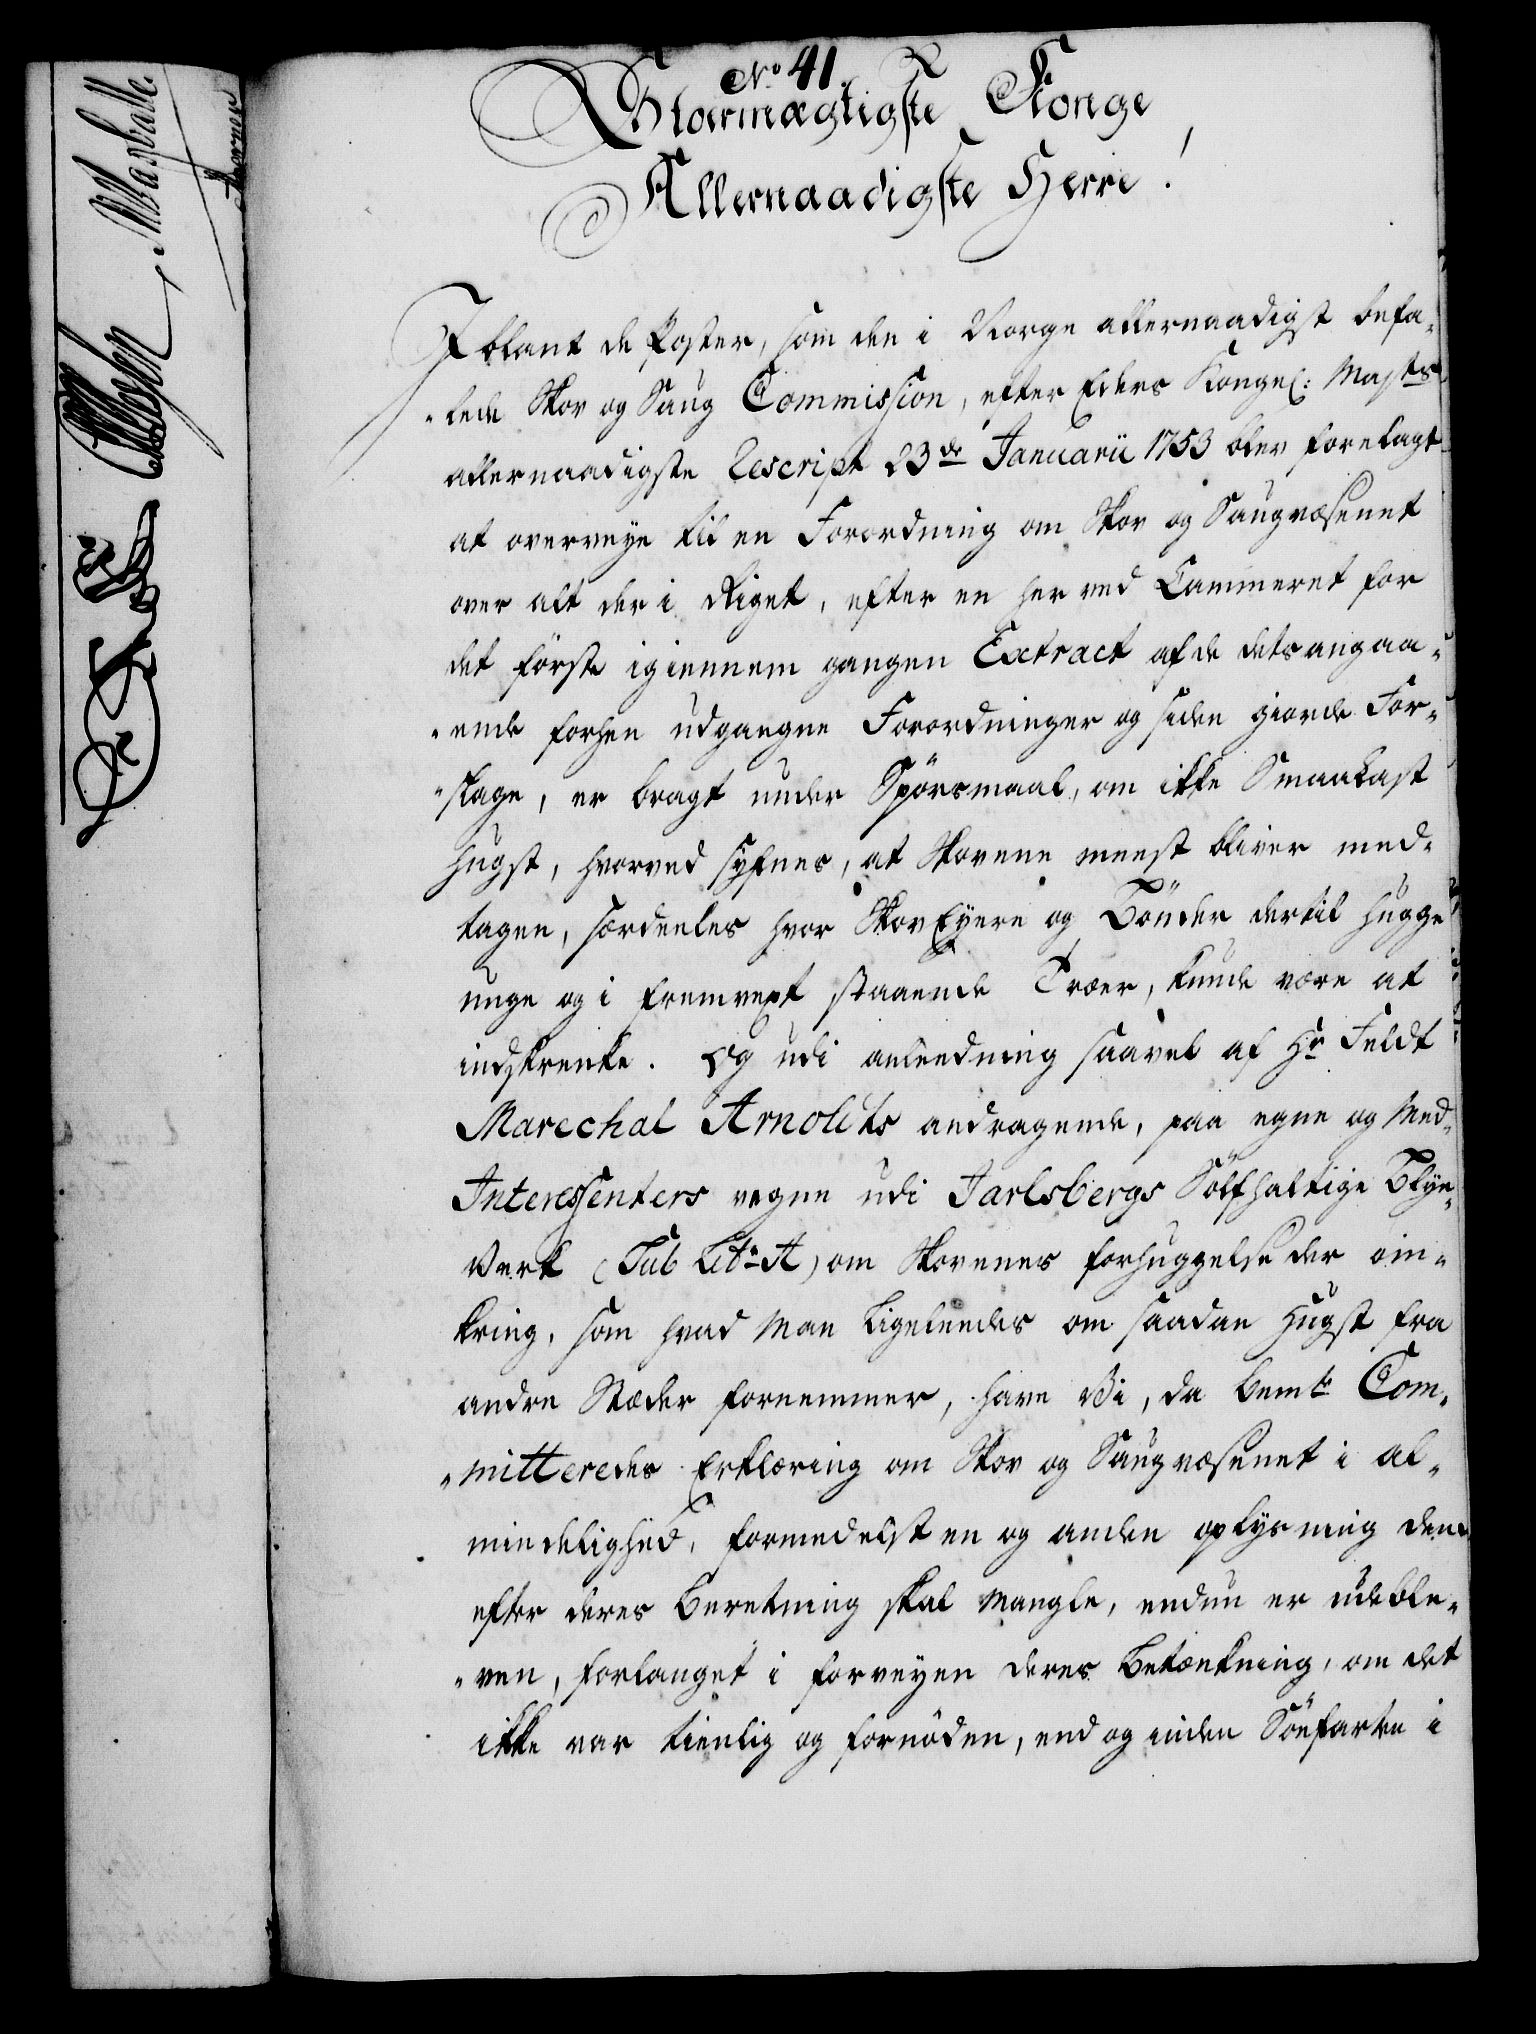 No 41.
Stormægtigste Konge
Allernaadigste Herre!
Iblant de Poster, som den i Norge allernaadigst befa-
-lede Skov og Saug Commission, efter Eders Kongel: Majts
allernaadigste Rescript 23de Januarii 1753 blev forelagt
at overveye til en Forordning om Skov og Saugvæsenet
over alt der i Riget, efter en her ved Cammeret for
det förste igiennem gangen Extract af de detsangaa-
-ende forhen udgangne Forordninger og siden giorde For-
-slage, er bragt under Spörsmaal, om ikke Smaalast
hugst, hvorved syhnes, at Skovene meest bliver med-
tagen, særdeeles hvor Skov Eyere og Bönder dertil hugge
unge og i fremvext staaende Træer, kunde være at
indskrenke. Og udi anleedning saavel af Hr Feldt
Marechal Arnolds andragende, paa egne og Med-
Interessenters vegne udi Jarlsbergs Sölfhaltige Blye-
Verk (Sub Litr A) om Skovenes forhuggelse der om-
kring, som hvad Man ligeleedes om saadan Hugst fra
andre Stæder fornemmer, have Vi, da bemte Com-
-mitteredes Erklæring om Skov og Saugvæsenet i al-
mindelighed, formedelst en og anden oplysning den
efter deres Beretning skal mangle, endnu er udeble-
-ven, forlanget i forveyen deres Betænkning, om det
ikke var tienlig og fornöden, end og inden Söefarten i